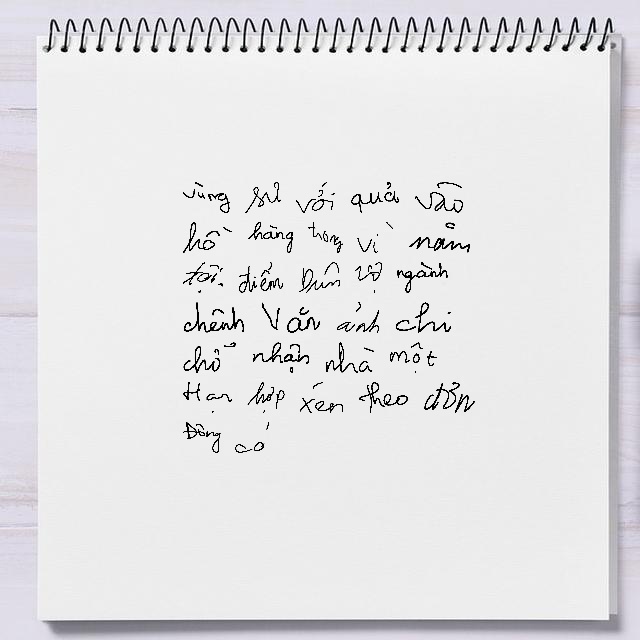 vùng sử với quả vào
hồ hàng trong vì năm
tại. điểm Dun vợ ngành
chênh Văn ảnh chi
chỗ nhận nhà một
Hạn hợp xén theo đến
Đồng có